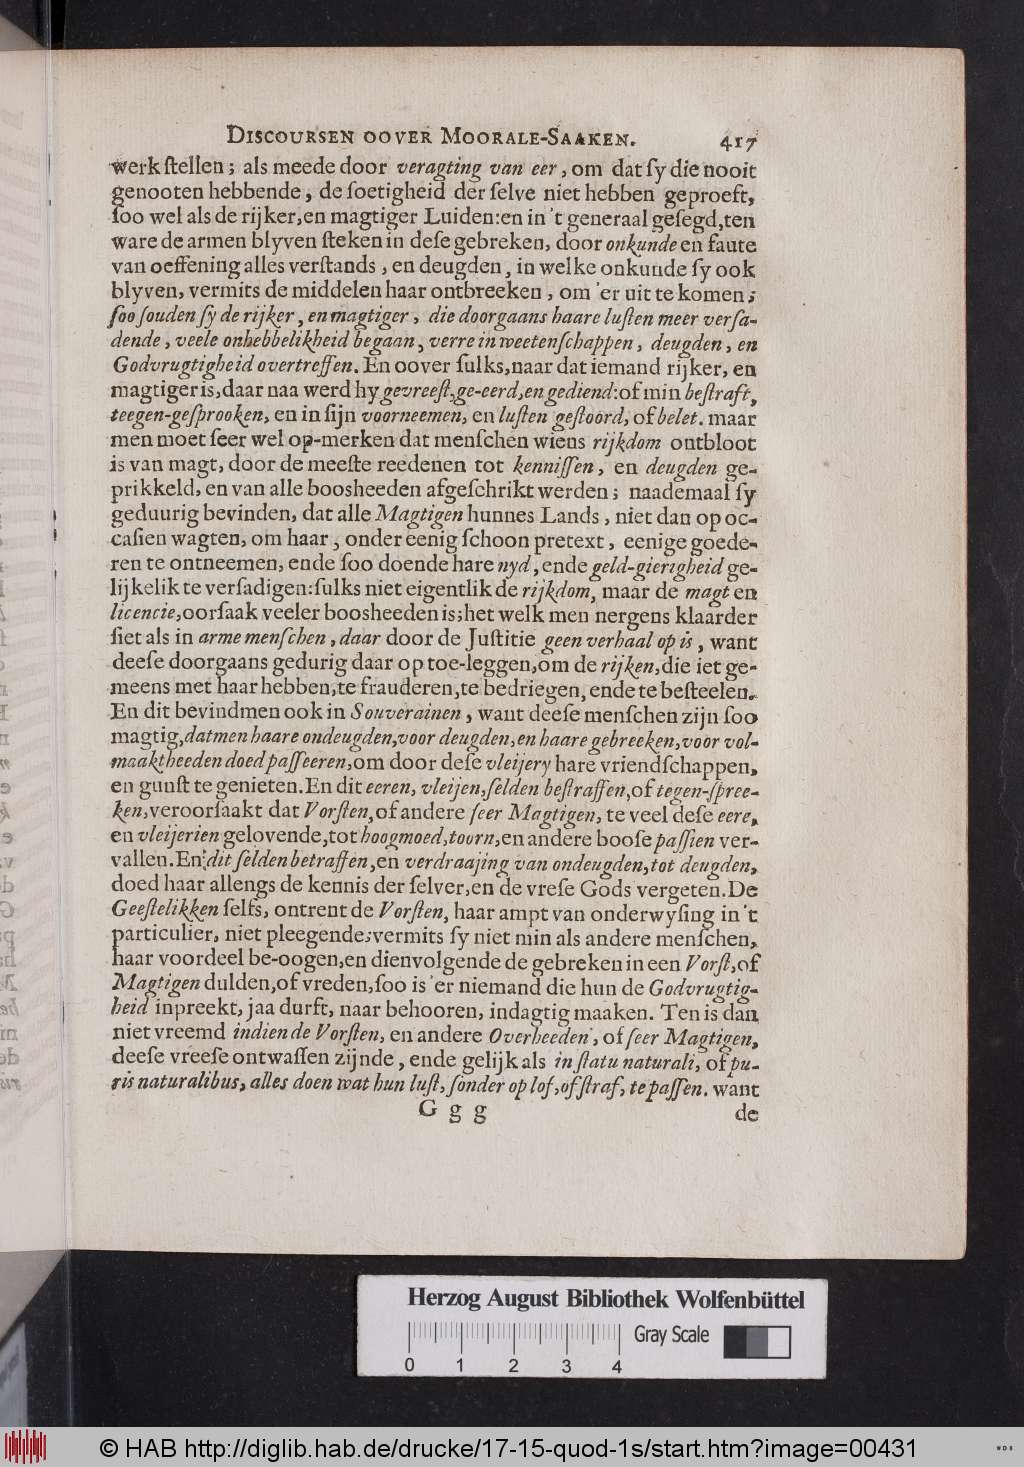 DISCOURSEN OOVER MOORALE-SAAKEN. 417
werkſtellen; als meede door veragting van eer, om dat ſy die nooit
genooten hebbende, de ſoetigheid der ſelve niet hebben geproeft,
ſoo wel als de rijker, en magtiger Luiden: en in 't generaal geſegd, ten
ware de armen blyven ſteken in deſe gebreken, door onkunde en faute
van oeffening alles verſtands, en deugden, in welke onkunde ſy ook
blyven, vermits de middelen haar ontbreeken, om 'er uit te komen;
ſoo ſouden ſy de rijker, en magtiger, die doorgaans haare luſten meer verſa-
dende, veele onhebbelikheid begaan, verre in weetenſchappen, deugden, en
Godvrugtigheid overtreffen. En oover ſulks, naar dat iemand rijker, en
magtiger is, daar naa werd hy gevreeſt, ge-eerd, en gediend: of min beſtraft,
teegen-geſprooken, en in ſijn voorneemen, en luſten geſtoord, of belet. maar
men moet ſeer wel op-merken dat menſchen wiens rijkdom ontbloot
is van magt, door de meeſte reedenen tot kenniſſen, en deugden ge-
prikkeld, en van alle boosheeden afgeſchrikt werden; naademaal ſy
geduurig bevinden, dat alle Magtigen hunnes Lands, niet dan op oc-
caſien wagten, om haar, onder eenig ſchoon pretext, eenige goede-
ren te ontneemen, ende ſoo doende hare nyd, ende geld-gierigheid ge-
lijkelik te verſadigen: ſulks niet eigentlik de rijkdom, maar de magt en
licencie, oorſaak veeler boosheeden is; het welk men nergens klaarder
ſiet als in arme menſchen, daar door de Juſtitie geen verhaal op is, want
deeſe doorgaans gedurig daar op toe-leggen, om de rijken, die iet ge-
meens met haar hebben, te frauderen, te bedriegen, ende te beſteelen.
En dit bevindmen ook in Souverainen, want deeſe menſchen zijn ſoo
magtig, datmen haare ondeugden, voor deugden, en haare gebreeken, voor vol-
maaktheeden doed paſſeeren, om door deſe vleijery hare vriendſchappen,
en gunſt te genieten. En dit eeren, vleijen, ſelden beſtraffen, of tegen-ſpree-
ken, veroorſaakt dat Vorſten, of andere ſeer Magtigen, te veel deſe eere,
en vleijerien gelovende, tot hoogmoed, toorn, en andere booſe paſſien ver-
vallen. En dit ſelden betraffen, en verdraajing van ondeugden, tot deugden,
doed haar allengs de kennis der ſelver, en de vreſe Gods vergeten. De
Geeſtelikken ſelfs, ontrent de Vorſten, haar ampt van onderwyſing in 't
particulier, niet pleegende; vermits ſy niet min als andere menſchen,
haar voordeel be-oogen, en dienvolgende de gebreken in een Vorſt, of
Magtigen dulden, of vreden, ſoo is 'er niemand die hun de Godvrugtig-
heid inpreekt, jaa durft, naar behooren, indagtig maaken. Ten is dan
niet vreemd indien de Vorſten, en andere Overheeden, of ſeer Magtigen,
deeſe vreeſe ontwaſſen zijnde, ende gelijk als in ſtatu naturali, of pu-
ris naturalibus, alles doen wat hun luſt, ſonder op lof, of ſtraf, te paſſen. want
G g g de
Herzog August Bibliothek Wolfenbüttel
Gray Scale
0 1 2 3 4
© HAB http://diglib.hab.de/drucke/17-15-quod-1s/start.htm?image=00431